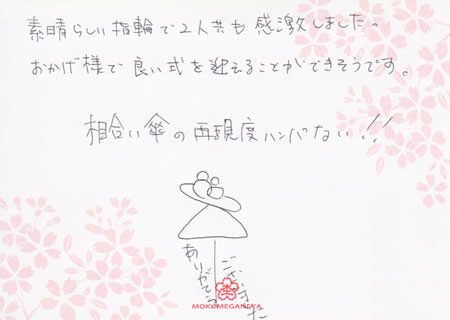 素晴らしい指輪で2人共も感激しました。
おかげ様で良い式を迎えることができそうです。
相合い傘の再現度ハンパない!!
ありがとう
ございました
MOKUMEGANEYA